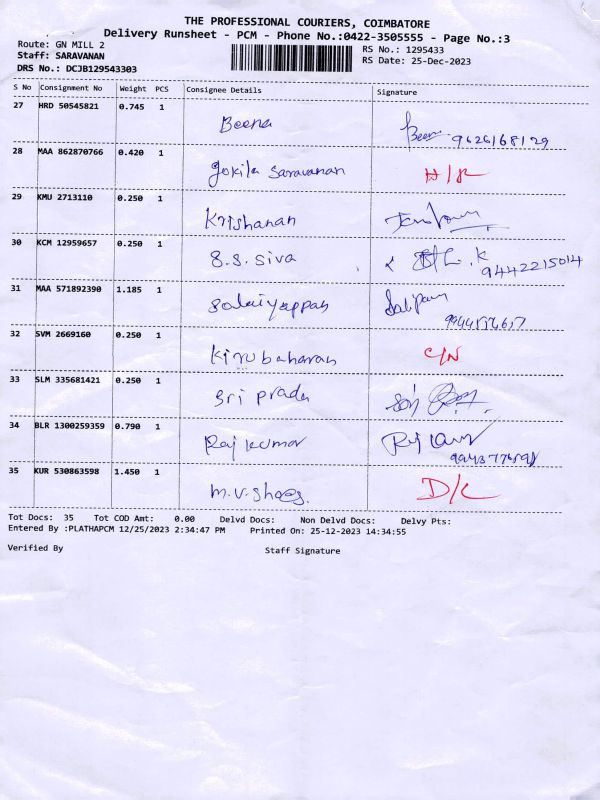 THE PROFESSIONAL COURIERS, COIMBATORE
Delivery Runsheet - PCM - Phone No.:0422-3505555 - Page No.:3
Route: GN MILL 2 RS No.: 1295433
Staff: SARAVANAN RS Date: 25-Dec-2023
DRS No.: DCJB129543303
S No Consignment No Weight PCS Consignee Details Signature
27 HRD 50545821 0.745 1
Beena Beena 9626168129
28 MAA 862870766 0.420 1
Gokila Saravanan
29 KMU 2713110 0.250 1
Krishanan
30 KCM 12959657 0.250 1
S.S. Siva 9442215014
31 MAA 571892390 1.185 1
Salaiyappan
32 SVM 2669160 0.250 1
Kirubaharan C/N
33 SLM 335681421 0.250 1
Sri Prada
34 BLR 1300259359 0.790 1
Raj Kumar
35 KUR 530863598 1.450 1
M.V. Shoes. D/L
Tot Docs: 35 Tot COD Amt: 0.00 Delvd Docs: Non Delvd Docs: Delvy Pts:
Entered By :PLATHAPCM 12/25/2023 2:34:47 PM Printed On: 25-12-2023 14:34:55
Verified By Staff Signature